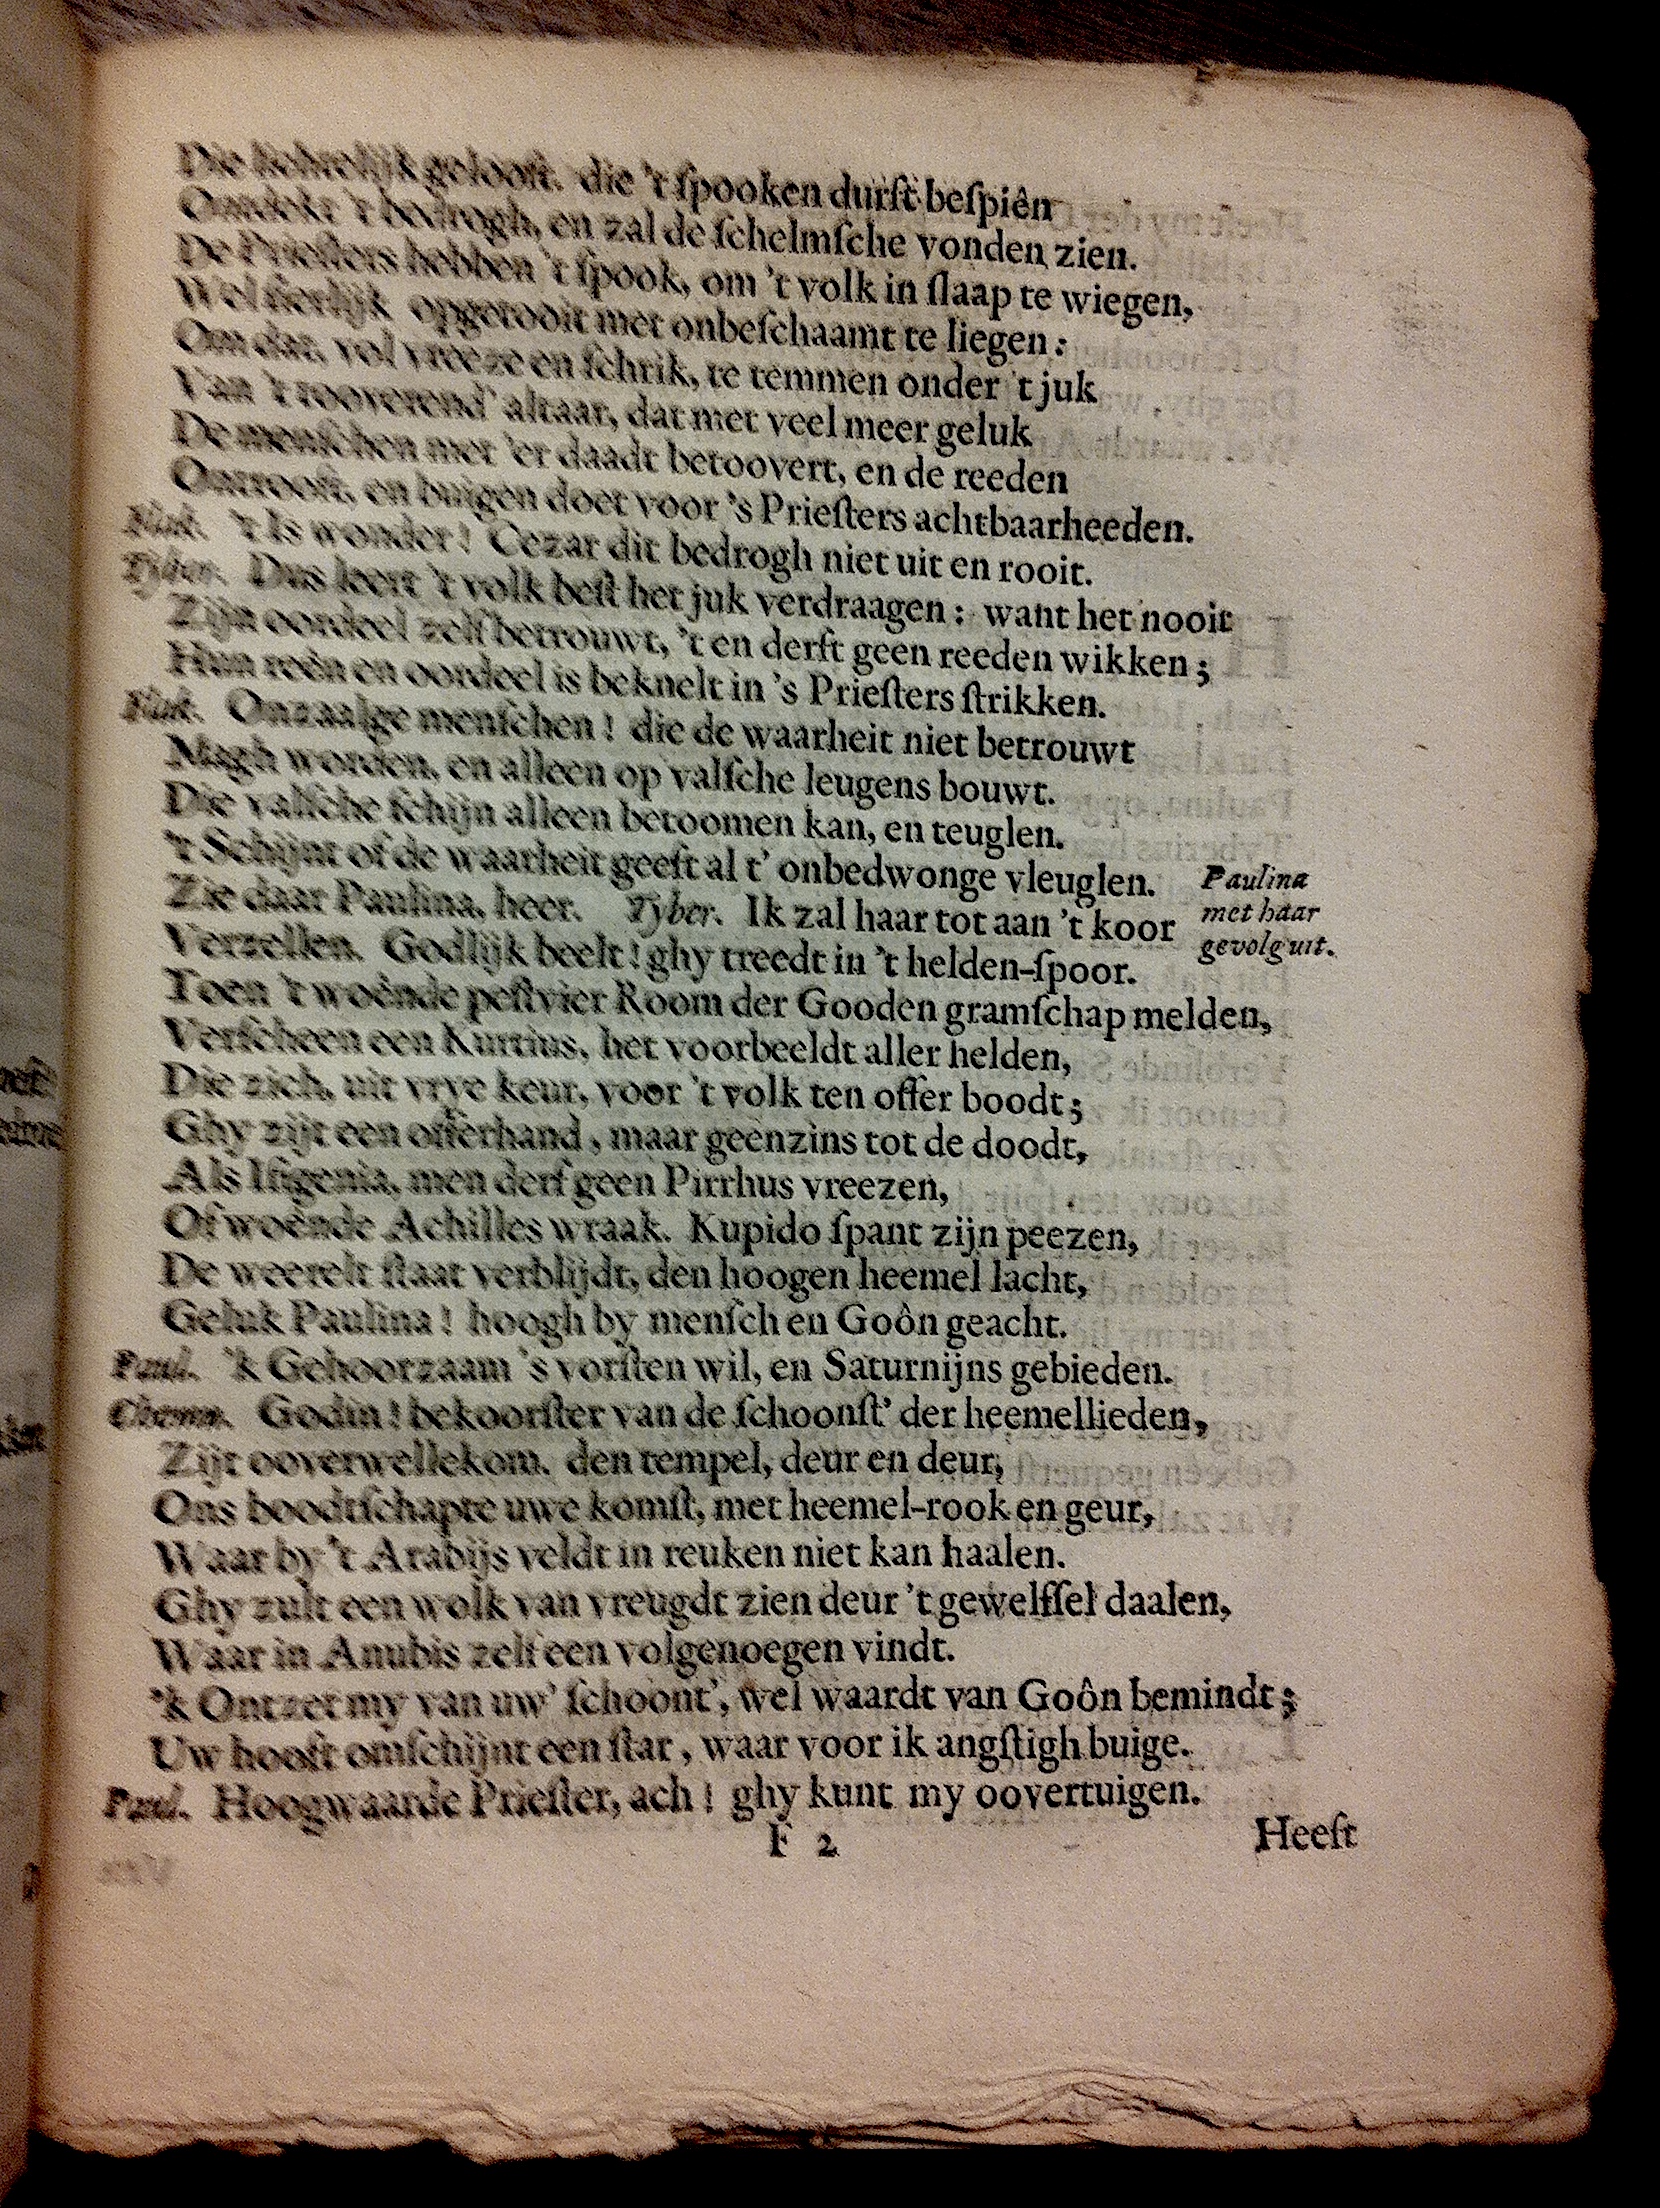 Die lichtelijk gelooft. die 't ſpooken durſt beſpiên
Ontdekt 't bedrogh, en zal de ſchelmſche vonden zien.
De Prieſters hebben 't ſpook, om 't volk in ſlaap te wiegen,
Wel sierlijk opgetooit met onbeſchaamt te liegen:
Om dat, vol vreeze en ſchrik, te temmen onder 't juk
Van 't rooverend' altaar, dat met veel meer geluk
De menſchen met 'er daadt betoovert, en de reeden
Ontrooft, en buigen doet voor 's Prieſters achtbaarheeden.
't Is wonder! Cezar dit bedrogh niet uit en rooit.
Tyber. Dus leert 't volk beſt het juk verdraagen: want het nooit
Zijn oordeel zelf betrouwt, 't en derft geen reeden wikken;
Hun reên en oordeel is beknelt in 's Prieſters ſtrikken.
Onzaalge menſchen! die de waarheit niet betrouwt
Magh worden, en alleen op valſche leugens bouwt.
Die valſche ſchijn alleen betoomen kan, en teuglen.
't Schijnt of de waarheit geeft al t' onbedwonge vleuglen.
Zie daar Paulina, heer. Tyber. Ik zal haar tot aan 't koor
Paulina
met haar
gevolg uit.
Verzellen. Godlijk beelt! ghy treedt in 't helden-ſpoor.
Toen 't woênde peſtvier Room der Gooden gramſchap melden,
Verſcheen een Kurtius, het voorbeeldt aller helden,
Die zich, uit vrye keur, voor 't volk ten offer boodt;
Ghy zijt een offerhand, maar geenzins tot de doodt,
Als Ifigenia, men derf geen Pirrhus vreezen,
Of woênde Achilles wraak. Kupido ſpant zijn peezen,
De weerelt ſtaat verblijdt, den hoogen heemel lacht,
Geluk Paulina! hoogh by menſch en Goôn geacht.
Paul. 'k Gehoorzaam 's vorſten wil, en Saturnijns gebieden.
Godin! bekoorſter van de ſchoonſt' der heemellieden,
Zijt ooverwellekom. den tempel, deur en deur,
Ons boodtſchapte uwe komſt, met heemel-rook en geur,
Waar by 't Arabijs veldt in reuken niet kan haalen.
Ghy zult een wolk van vreugdt zien deur 't gewelfſel daalen,
Waar in Anubis zelf een volgenoegen vindt.
'k Ontzet my van uw' ſchoont', wel waardt van Goôn bemindt;
Uw hooft omſchijnt een ſtar, waar voor ik angſtigh buige.
Paul. Hoogwaarde Prieſter, ach! ghy kunt my oovertuigen.
F 2
Heeft